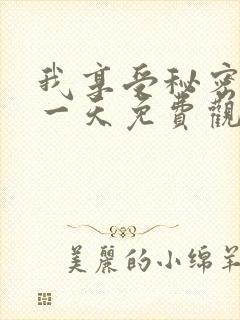 我享受秘密
一天免費觀
美麗的小綿羊